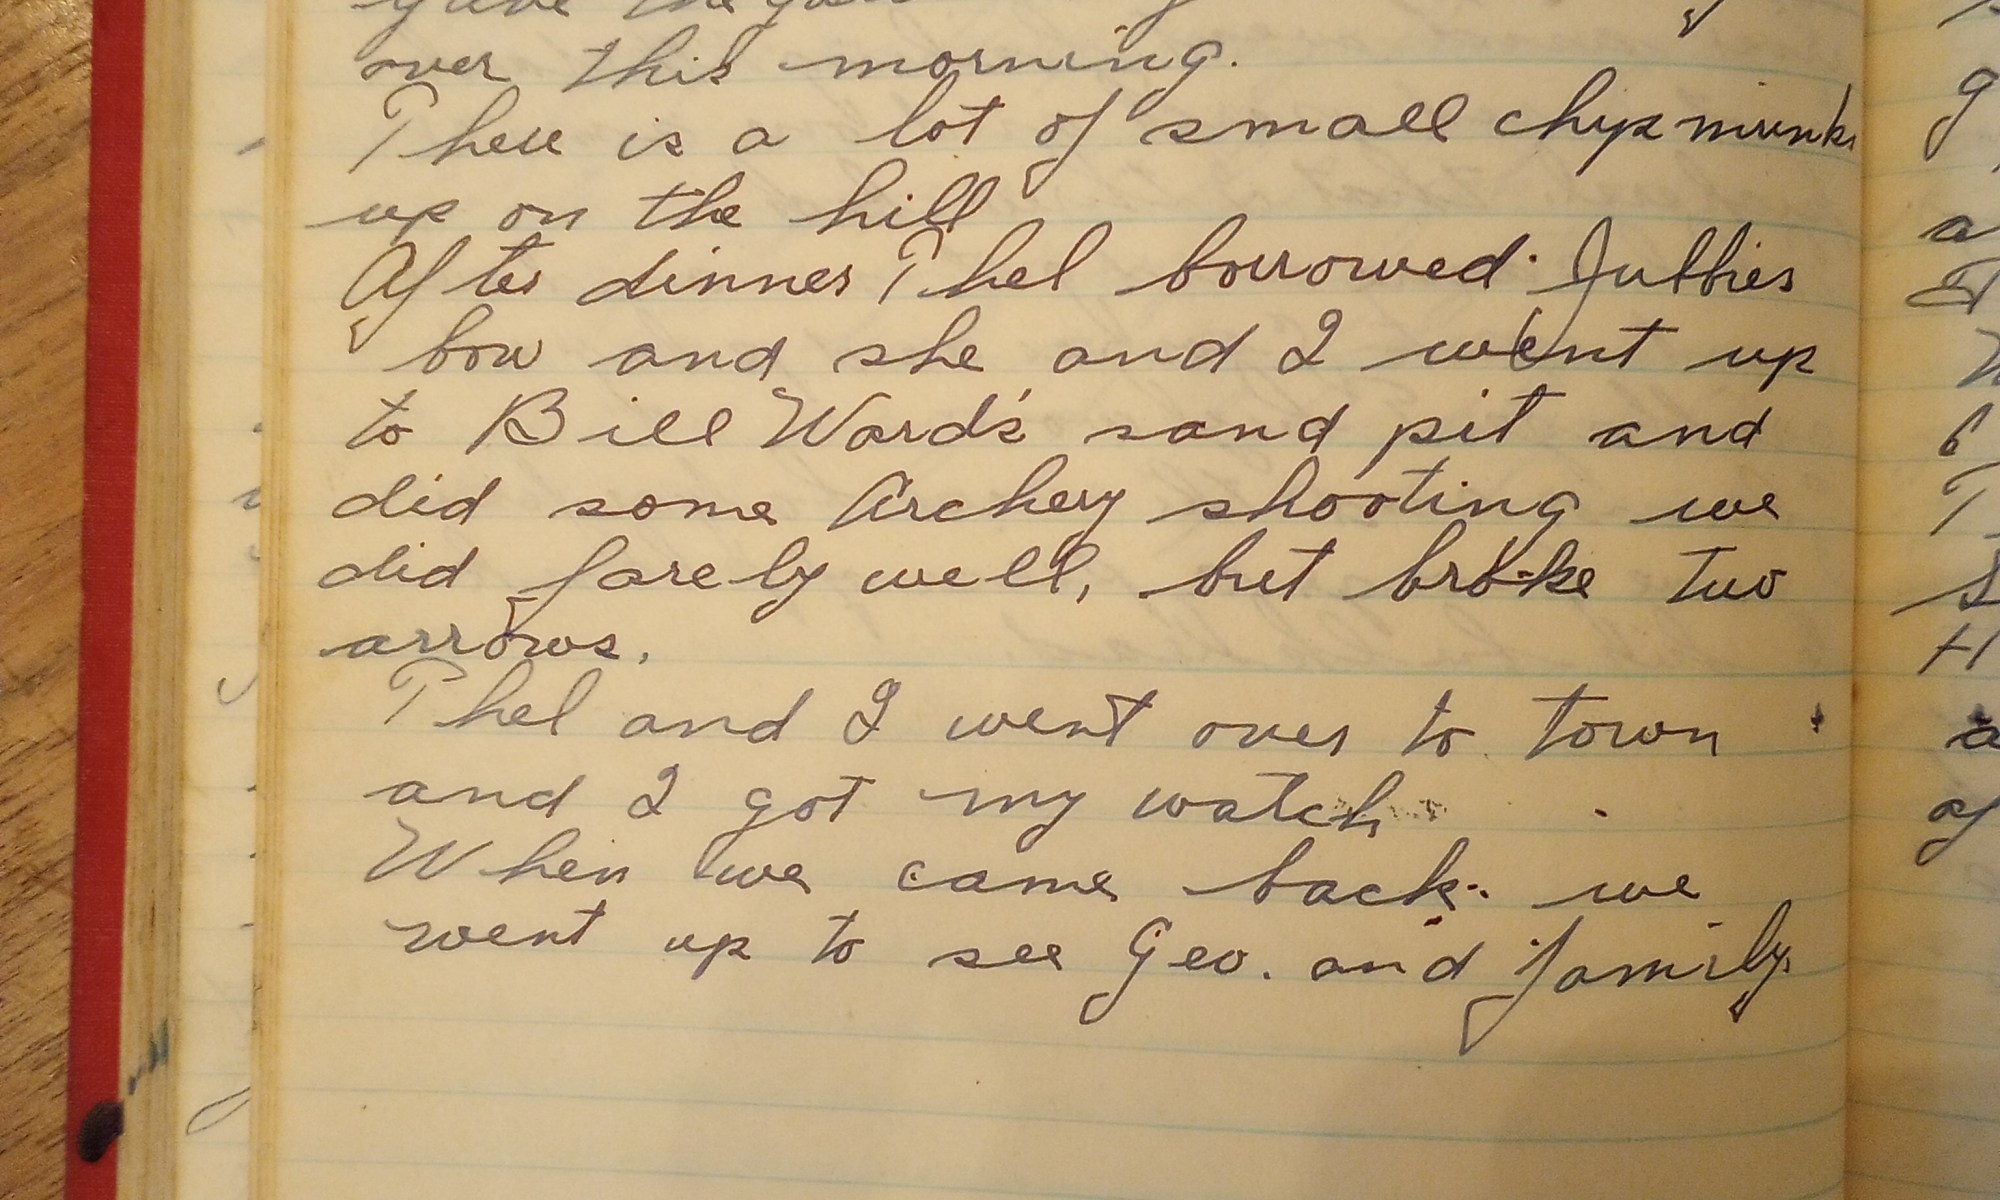 gave the
over this morning.
There is a lot of small chipmunks
up on the hill
After dinner Thel borrowed
bow and she and I went up
to Bill Ward's sand pit and
did some Archery shooting we
did farely well, but broke two
arrows.
Thel and I went over to town
and I got my watch
When we came back we
went up to see Geo. and family.